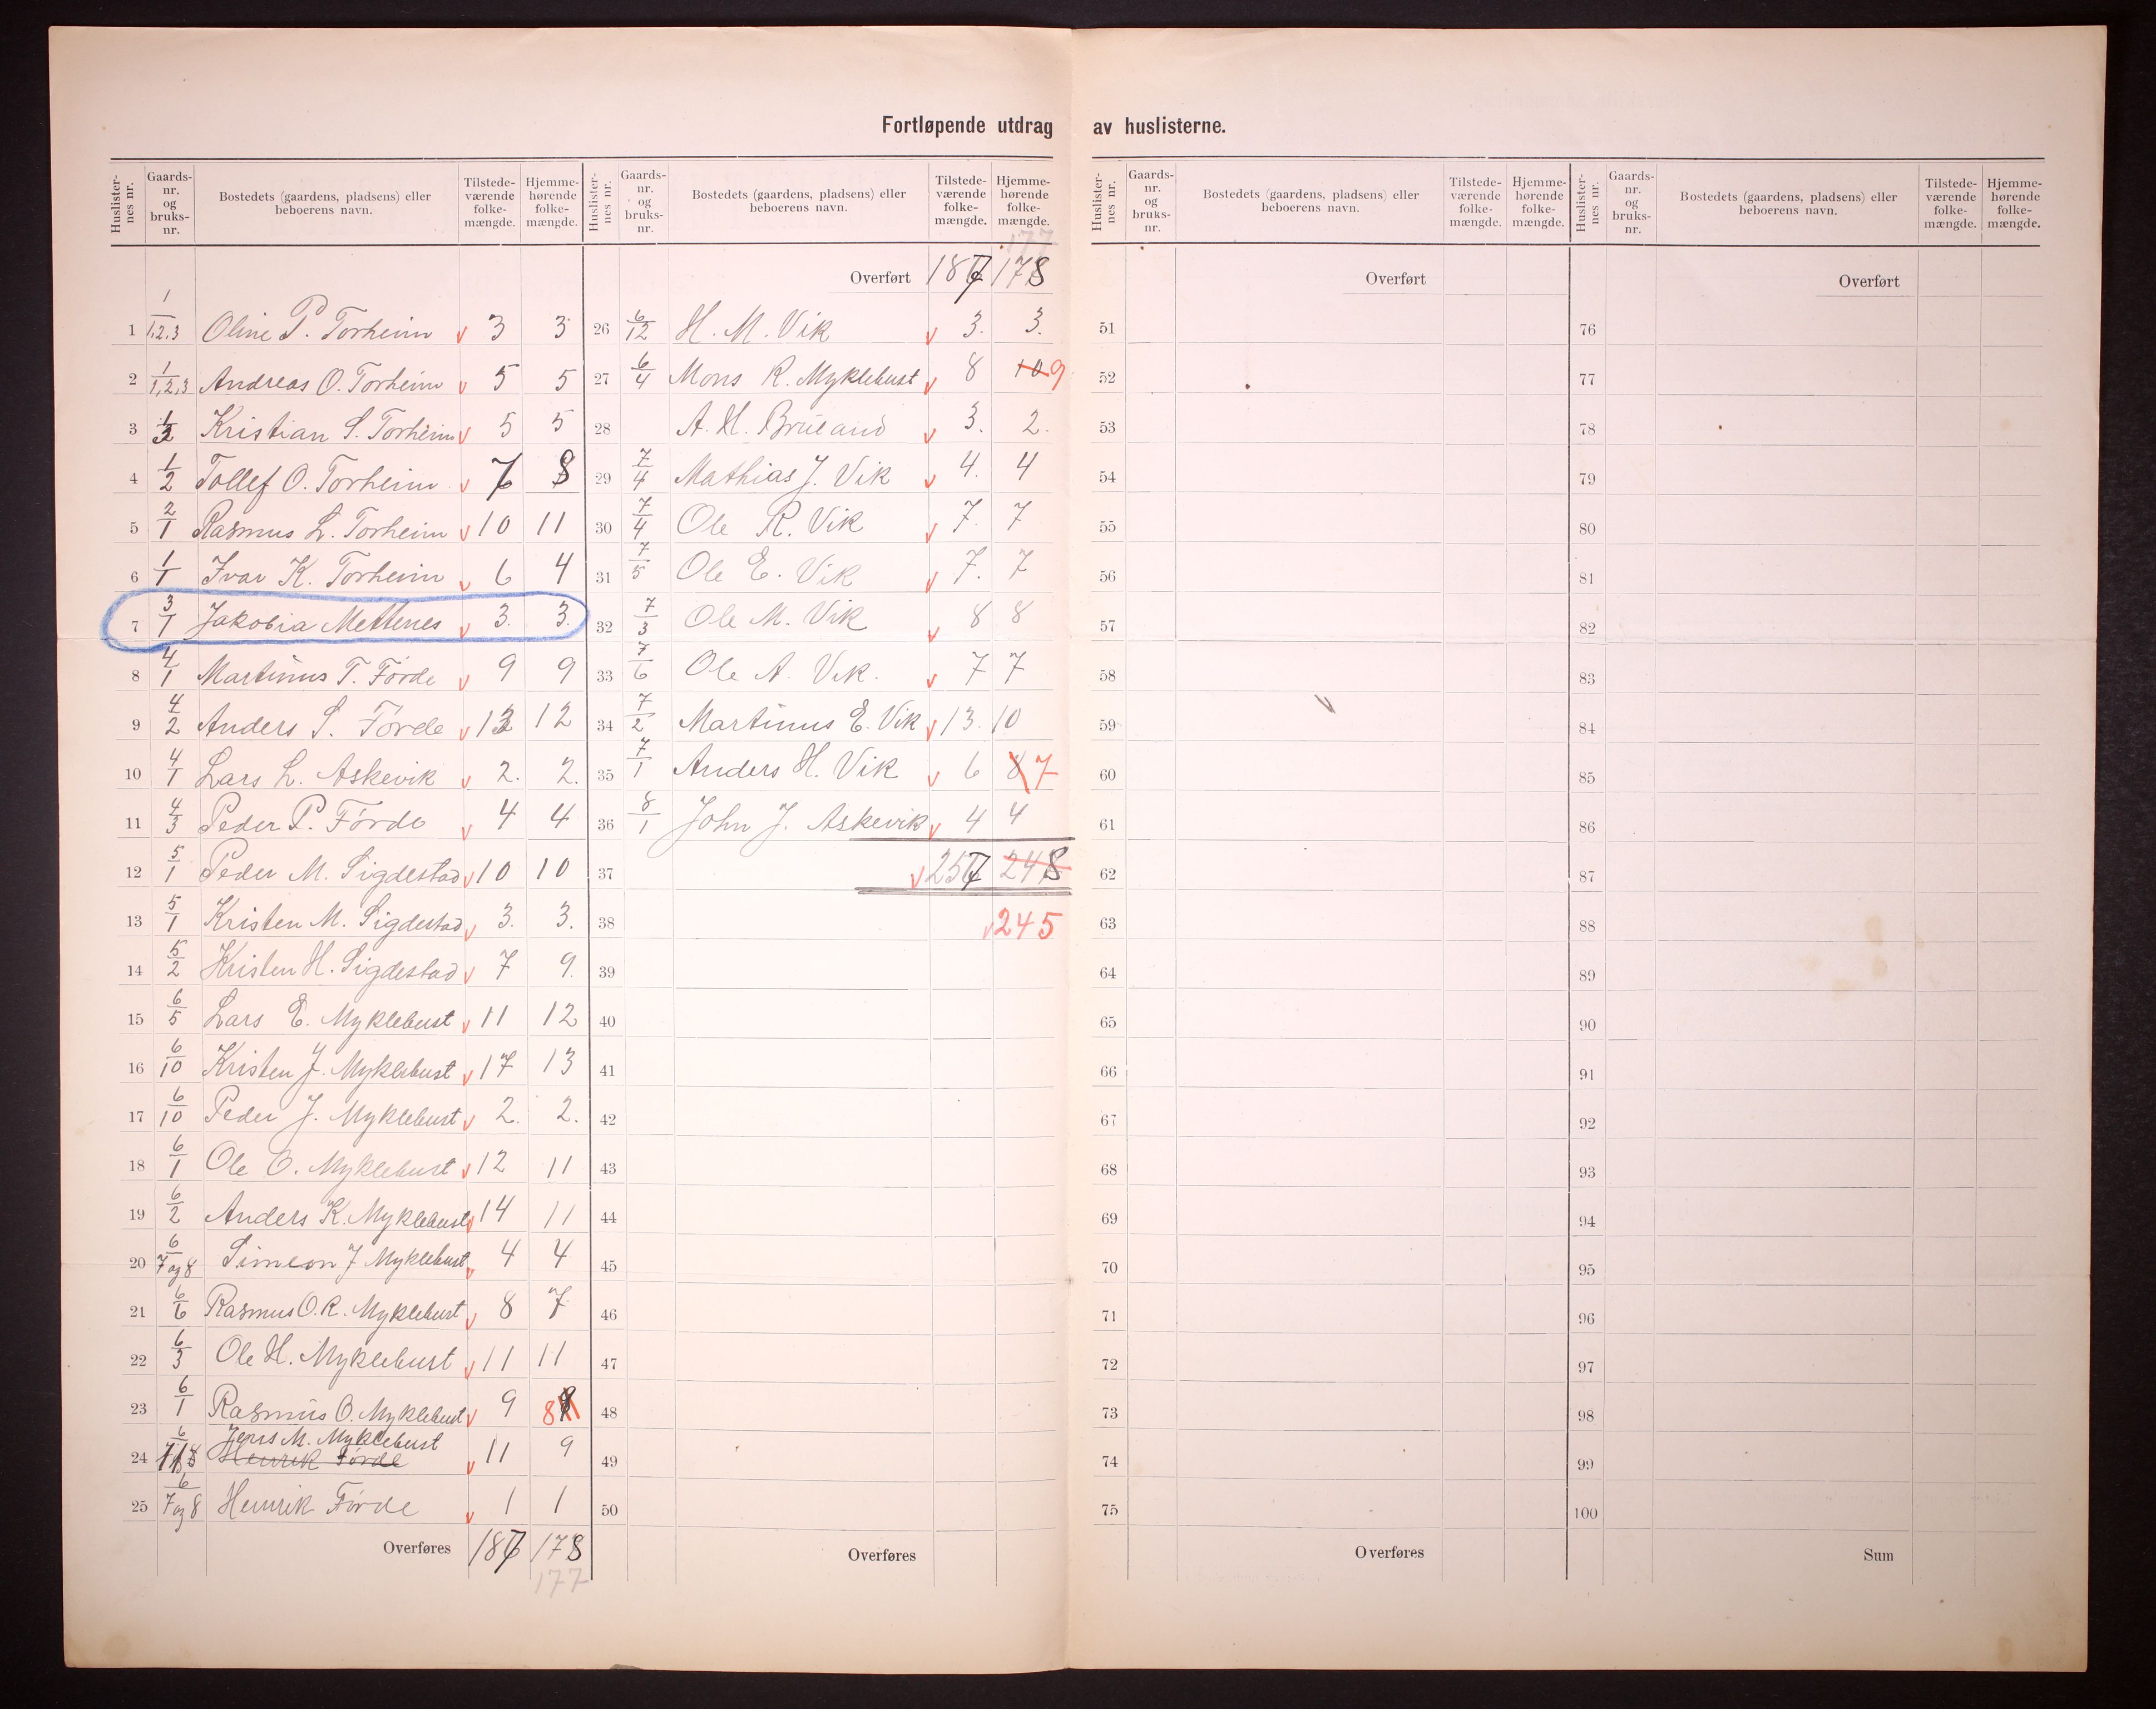 Fortløpende utdrag av huslisterne.
Huslisternes nr. Gaardsnr. og bruksnr. Bostedets (gaardens, pladsens) eller beboerens navn. Tilstedeværende folkemængde. Hjemmehørende folkemængde.
1 1/1,2,3 Oline P. Torheim v 3 3
2 1/1,2,3 Andreas O. Torheim v 5 5
3 1/3 Kristian S. Torheim v 5 5
4 1/2 Tollef O. Torheim v 7 8
5 2/1 Rasmus L. Torheim v 10 11
6 1/1 Ivar K. Torheim v 6 4
7 3/1 Jakobia Mettenes v 3. 3.
8 4/1 Martinus T. Förde v 9 9
9 4/2 Anders S. Förde v 13 12
10 4/1 Lars L. Askevik v 2. 2.
11 4/3 Peder P. Förde v 4 4
12 5/1 Peder M. Sigdestad v 10 10
13 5/1 Kristen M. Sigdestad v 3. 3.
14 5/2 Kristen H. Sigdestad v 7 9.
15 6/5 Lars E. Myklebust v 11 12
16 6/10 Kristen J. Myklebust v 17 13
17 6/10 Peder J. Myklebust v 2. 2.
18 6/1 Ole O. Myklebust v 12 11
19 6/2 Anders K. Myklebust v 14 11
20 6/7 og 8 Simeon J Myklebust v 4 4
21 6/6 Rasmus O. R. Myklebust v 8 7
22 6/3 Ole H. Myklebust v 11 11
23 6/1 Rasmus O. Myklebust v 9 8
24 Jens M. Myklebust v 11 9
Henrik Förde
25 6/7 og 8 Henrik Förde v 1 1
Overføres 187 178
177
Huslisternes nr. Gaardsnr. og bruksnr. Bostedets (gaardens, pladsens) eller beboerens navn. Tilstedeværende folkemængde. Hjemmehørende folkemængde.
177
Overført 187 178
26 6/12 H. M. Vik v 3. 3.
27 6/4 Mons R. Myklebust v 8 10 9
28 A. H. Brüland v 3. 2.
29 7/4 Mathias J. Vik v 4. 4
30 7/4 Ole R. Vik v 7. 7
31 7/5 Ole E. Vik v 7. 7
32 7/3 Ole M. Vik v 8 8
33 7/6 Ole A. Vik. v 7 7
34 7/2 Martinus E. Vik v 13. 10
35 7/1 Anders H. Vik v 6 8 7
36 8/1 John J. Askevik v 4 4
37 v 257 248
38 v 245
39
40
41
42
43
44
45
46
47
48
49
50
Overføres
Huslisternes nr. Gaardsnr. og bruksnr. Bostedets (gaardens, pladsens) eller beboerens navn. Tilstedeværende folkemængde. Hjemmehørende folkemængde.
Overført
51
52
53
54
55
56
57
58
59
60
61
62
63
64
65
66
67
68
69
70
71
72
73
74
75
Overføres
Huslisternes nr. Gaardsnr. og bruksnr. Bostedets (gaardens, pladsens) eller beboerens navn. Tilstedeværende folkemængde. Hjemmehørende folkemængde.
Overført
76
77
78
79
80
81
82
83
84
85
86
87
88
89
90
91
92
93
94
95
96
97
98
99
100
Sum